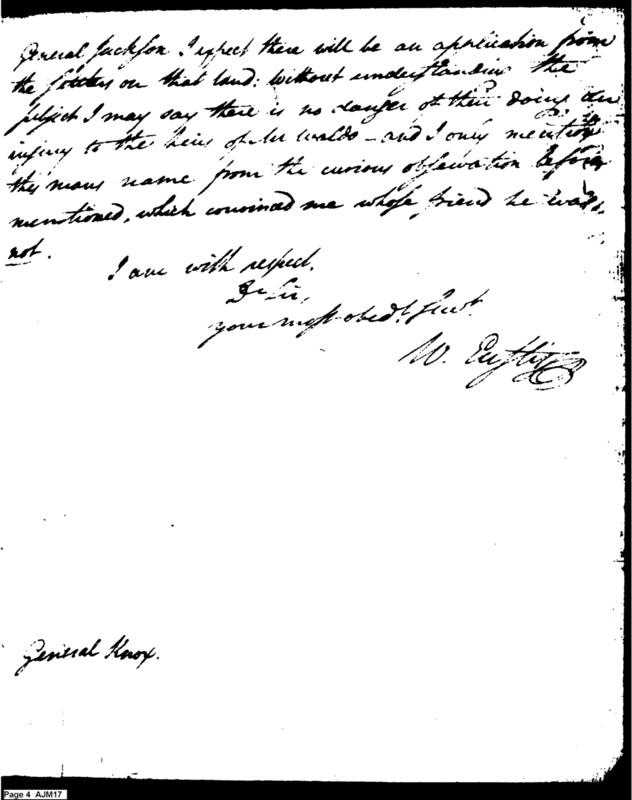 General Jackson. I expect there will be an application from
the settlers on that land: without understanding the
subject I may say there is no danger of their doing an
injury to the heirs of Mr Waldo – and I only mention
this mans name from the curious observation before
mentioned, which convinced me whose friend he was
not.
I am with respect.
Dr Sir,
your most obedt. Servt.
W. Eustis
General Knox.
Page 4 AJM17